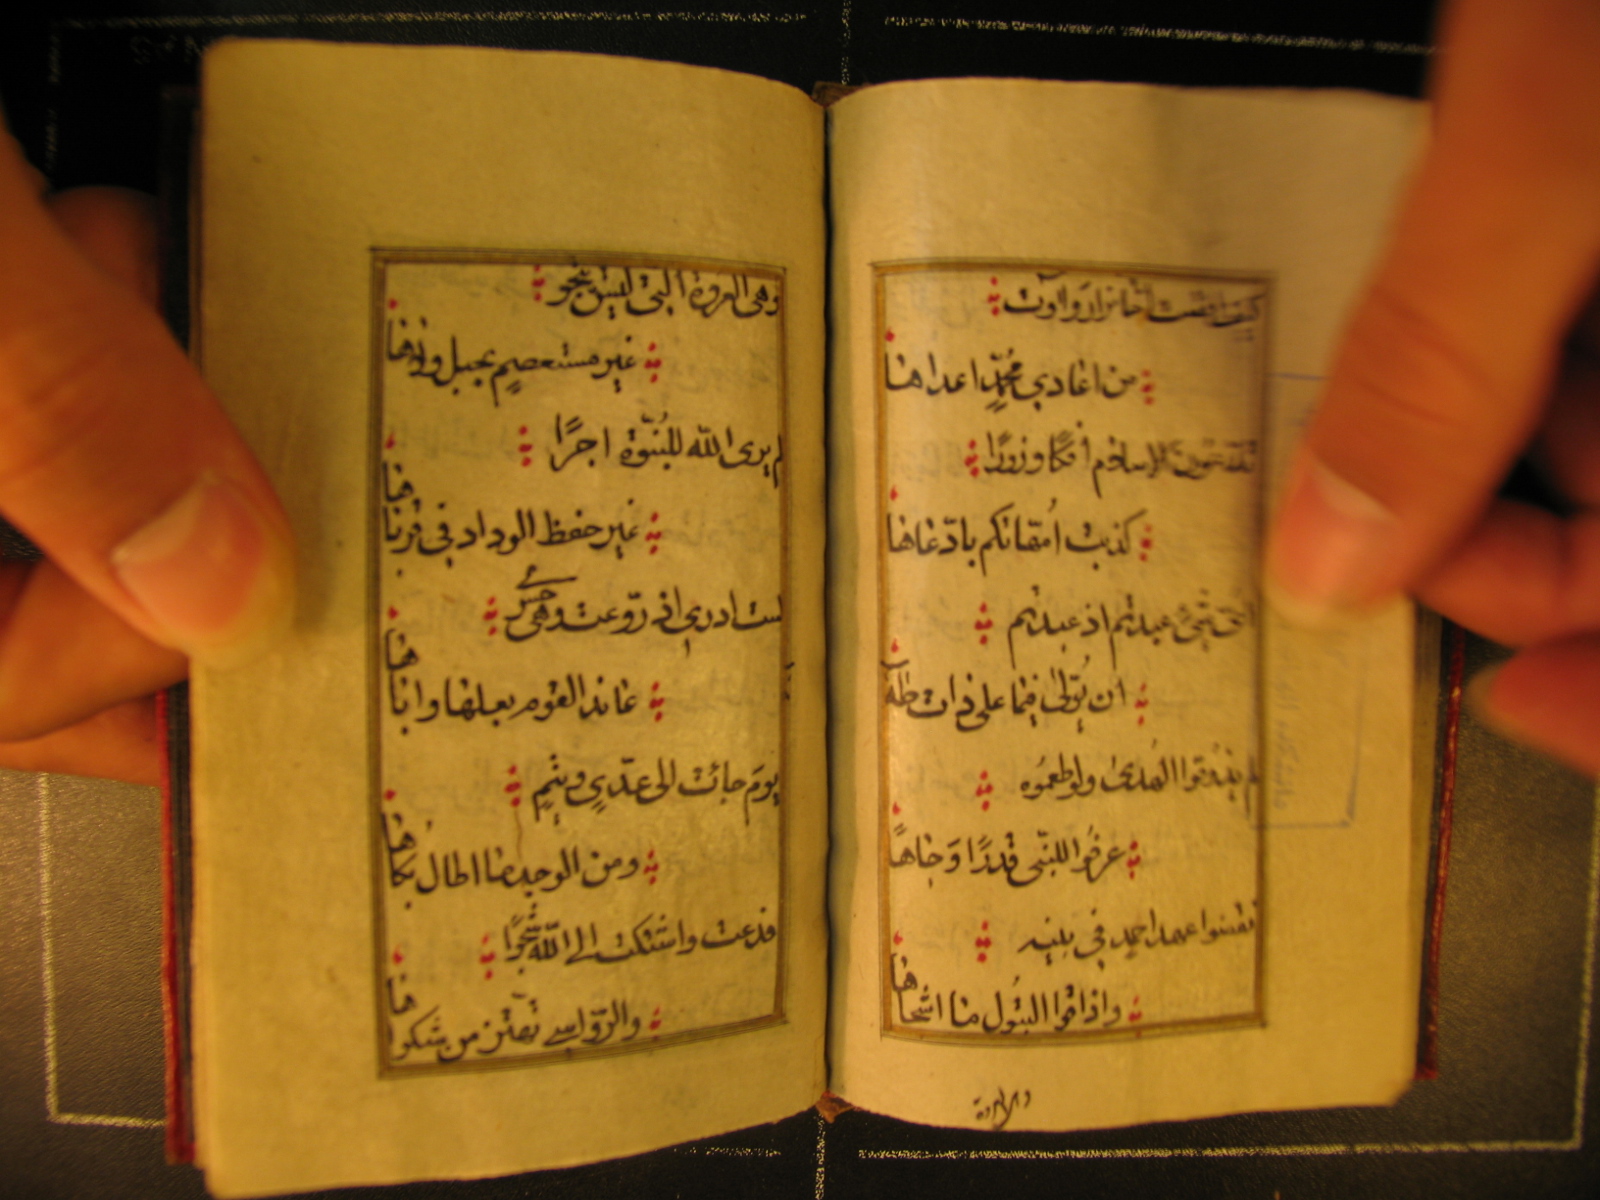 كيف اقصت اخانزار واوت
من اعادي محمدٍ اعداها
للاسلام افكا وزورًا
كذبت امقاتكم بادّعاها
عبدتم اذ عبدتم
ان يُولى فيما على ذات طه
لم يذوقوا الهدى ولو طعموه
عرفوا للنبي قدرًا وَجاهًا
نقضوا عهد احمد في بنيه
واذاقوا البتول ما اشجاها
وهي العروة التي ليس ينجو
غير مستعصمٍ بحبل ولاها
لم يرى الله للنبوّة اجرًا
غير حفظ الوداد في قرباها
لست ادري اذ روّعت وهي حسرى
عاند القوم بعلها واباها
يومَ جائت الى عدّيٍ وتيمٍ
ومن الوجد ما اطال بكاها
فدعت واشتكت الى الله شجوًا
والرّواسي تهتز من شكواها
وهي العروة